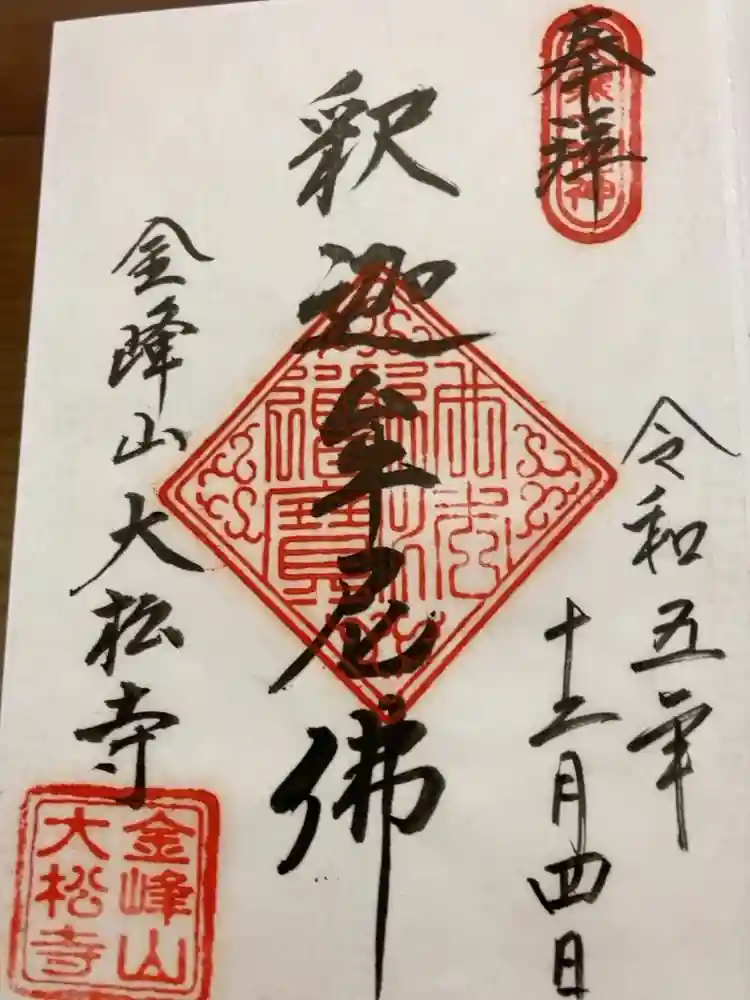 奉拝
令和五年
十二月四日
釈迦牟尼佛
佛法
僧寶
金峰山大松寺
金峰山
大松寺